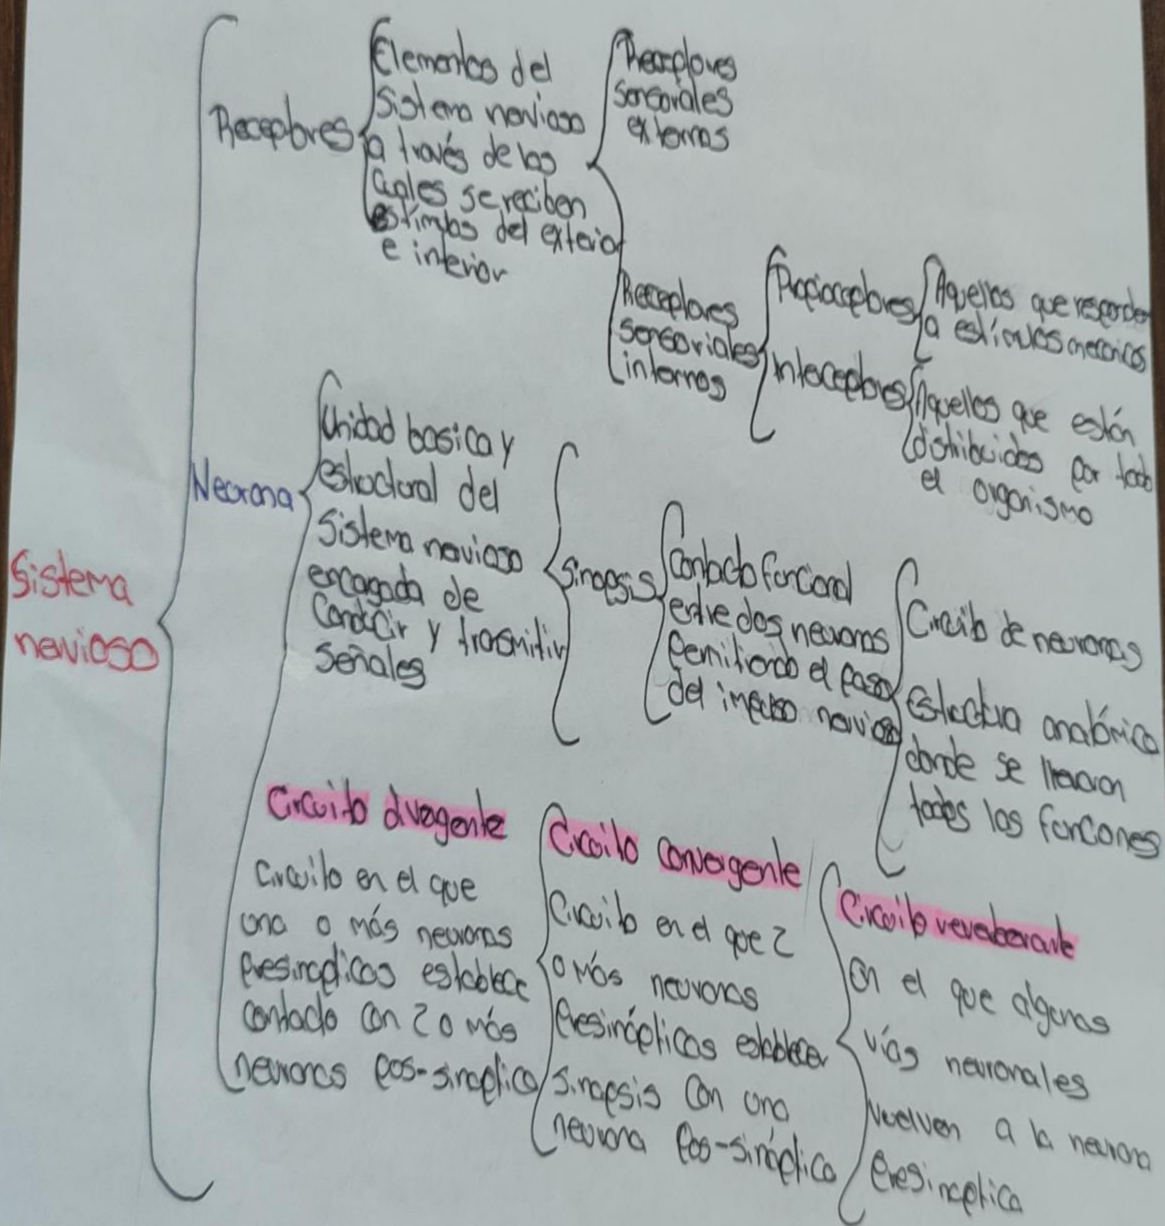 Sistema
nervioso
Receptores
Elementos del
sistema nervioso
a través de los
cuales se reciben
estímulos del exterior
e interior
Receptores
sensoriales
externos
Receptores
sensoriales
internos
Propioceptores
Aquellos que responden
a estímulos mecánicos
Interoceptores
Aquellos que están
distribuidos por todo
el organismo
Neurona
Unidad basica y
estructural del
sistema nervioso
encargada de
conducir y trasmitir
señales
Sinapsis
Contacto funcional
entre dos neuronas
permitiendo el paso
del impulso nervioso
Circuito de neuronas
Estructura anatómica
donde se llevan
todas las funciones
Circuito divergente
Circuito en el que
una o más neuronas
presinapticas establece
contacto con 2 o más
neuronas pos-sinaptica
Circuito convergente
Circuito en el que 2
o más neuronas
presinápticas establecen
sinapsis con una
neurona pos-sináptica
Circuito reverberante
en el que algunas
vías neuronales
vuelven a la neurona
presinaptica